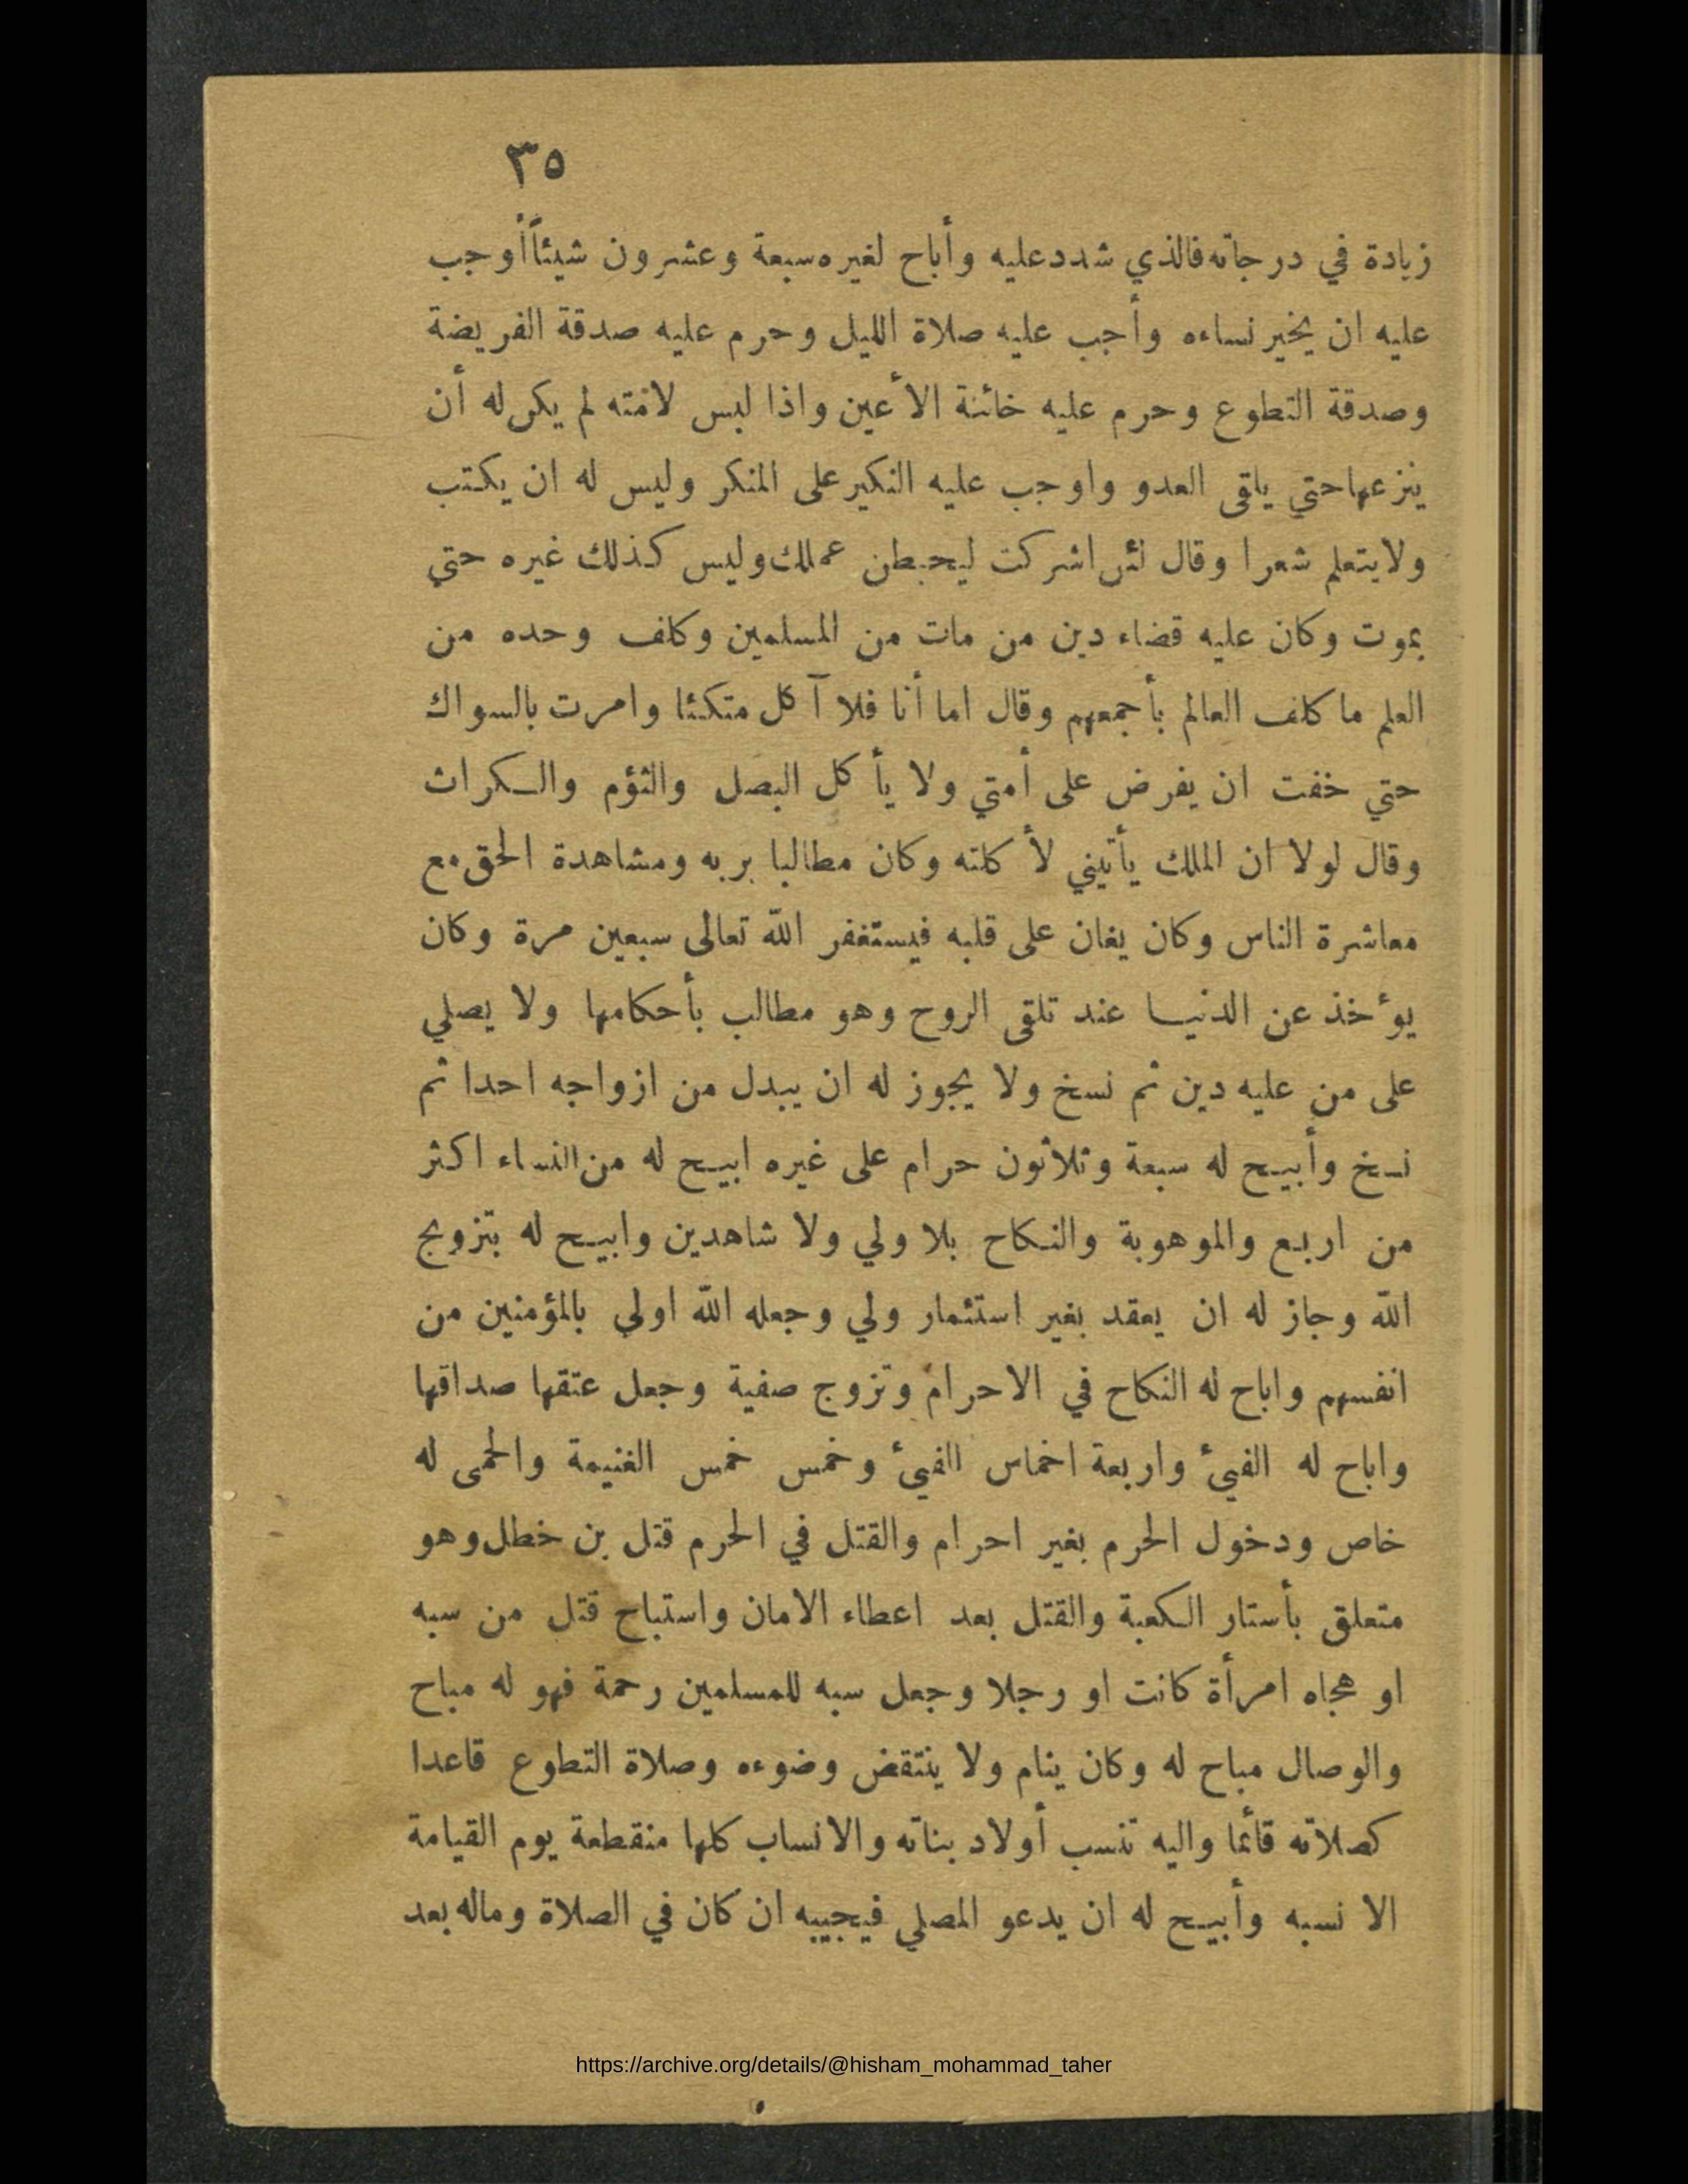 ٣٥
زيادة في درجاته فالذي شدد عليه وأباح لغيره سبعة وعشرون شيئاً أوجب
عليه ان يخير نساءه وأجب عليه صلاة الليل وحرم عليه صدقة الفريضة
وصدقة التطوع وحرم عليه خائنة الأعين واذا لبس لامته لم يكن له أن
ينزعها حتي يلقى العدو واوجب عليه النكير على المنكر وليس له ان يكتب
ولا يتعلم شعرا وقال لئن اشركت ليحبطن عملك وليس كذلك غيره حتي
يموت وكان عليه قضاء دين من مات من المسلمين وكلف وحده من
العلم ما كلف العالم بأجمعهم وقال اما أنا فلا آكل متكئا وامرت بالسواك
حتي خفت ان يفرض على أمتي ولا يأكل البصل والثؤم والكراث
وقال لولا ان الملك يأتيني لأكلته وكان مطالبا بربه ومشاهدة الحق مع
معاشرة الناس وكان يغان على قلبه فيستغفر الله تعالى سبعين مرة وكان
يؤخذ عن الدنيا عند تلقى الروح وهو مطالب بأحكامها ولا يصلي
على من عليه دين ثم نسخ ولا يجوز له ان يبدل من ازواجه احدا ثم
نسخ وأبيح له سبعة وثلاثون حرام على غيره ابيح له من النساء اكثر
من اربع والموهوبة والنكاح بلا ولي ولا شاهدين وابيح له بتزويج
الله وجاز له ان يعقد بغير استئمار ولي وجعله الله اولي بالمؤمنين من
انفسهم واباح له النكاح في الاحرام وتزوج صفية وجعل عتقها صداقها
واباح له الفيئ واربعة اخماس الفيئ وخمس خمس الغنيمة والحمى له
خاص ودخول الحرم بغير احرام والقتل في الحرم قتل بن خطل وهو
متعلق بأستار الكعبة والقتل بعد اعطاء الامان واستباح قتل من سبه
او هجاه امرأة كانت او رجلا وجعل سبه للمسلمين رحمة فهو له مباح
والوصال مباح له وكان ينام ولا ينتقض وضوءه وصلاة التطوع قاعدا
كصلاته قائما واليه تنسب أولاد بناته والانساب كلها منقطعة يوم القيامة
الا نسبه وأبيح له ان يدعو المصلي فيجيبه ان كان في الصلاة وماله بعد
https://archive.org/details/@hisham_mohammad_taher